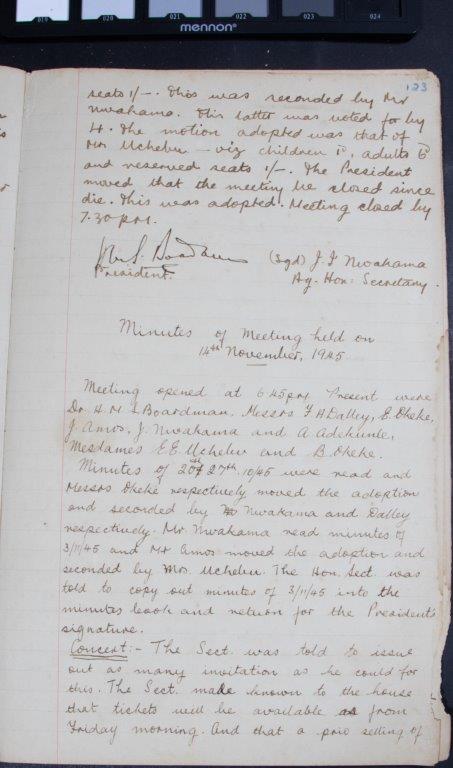 019 020 021 022 023 024
mennon
123
seats 1/-. This was seconded by Mr
Nwakama. This latter was voted for by
4. The motion adopted was that of
Mrs Uchebu - viz children 1D, adults 6D
and reserved seats 1/-. The President
moved that the meeting be closed since
die. This was adopted. Meeting closed by
7.30 pm.
Boardman (sgd) J. I Nwakama
President. Ag. Hon: Secretary.
Minutes of Meeting held on
14th November, 1945
Meeting opened at 6.45pm. Present were
Dr. H. M. S Boardman, Messrs F H Dalley, E. Okeke,
J. Amos, J. Nwakama and A Adekunle,
Mesdames E. E. Uchebu and B. Okeke.
Minutes of 20th 27th, 10/45 were read and
Messrs Okeke respectively moved the adoption
and seconded by Nwakama and Dalley
respectively. Mr. Nwakama read minutes of
3/11/45 and Mr Amos moved the adoption and
seconded by Mrs. Uchebu. The Hon. Sect. was
told to copy out minutes of 3/11/45 into the
minutes book and return for the President's
signature.
Concert:- The Sect. was told to issue
out as many invitation as he could for
this. The Sect. made known to the house
that tickets will be available as from
Friday morning. And that a prio selling of